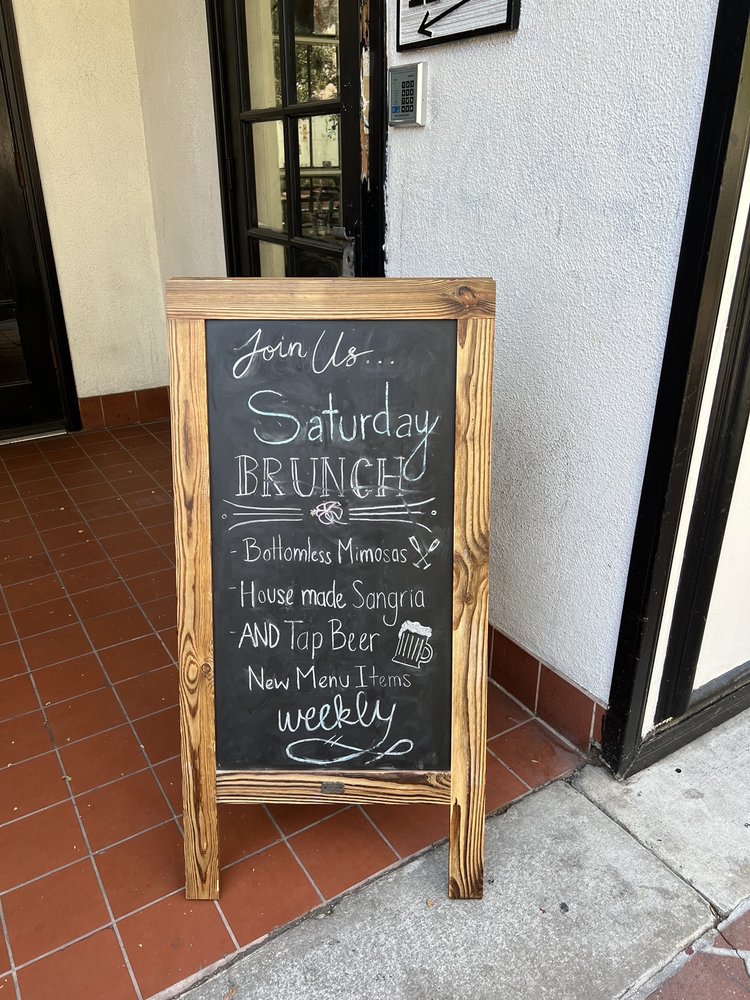 Join Us...
Saturday
BRUNCH
- Bottomless Mimosas
- House made Sangria
- AND Tap Beer
New Menu Items
weekly